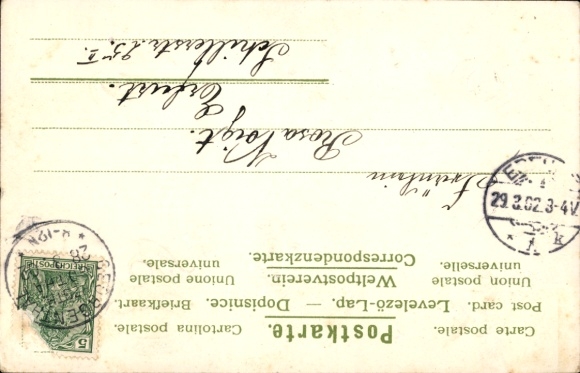 Postkarte.
Carte postale. Cartolina postale.
Post card. Levelező-Lap. — Dopisnice. Briefkaart.
Union postale universelle. Weltpostverein. Unione postale universale.
Correspondenzkarte.
Fräulein
Rosa Voigt.
Erfurt.
Schillerstr. 25 II.
REICHSPOST
5
29.3.02.3-4V.
1 k
28